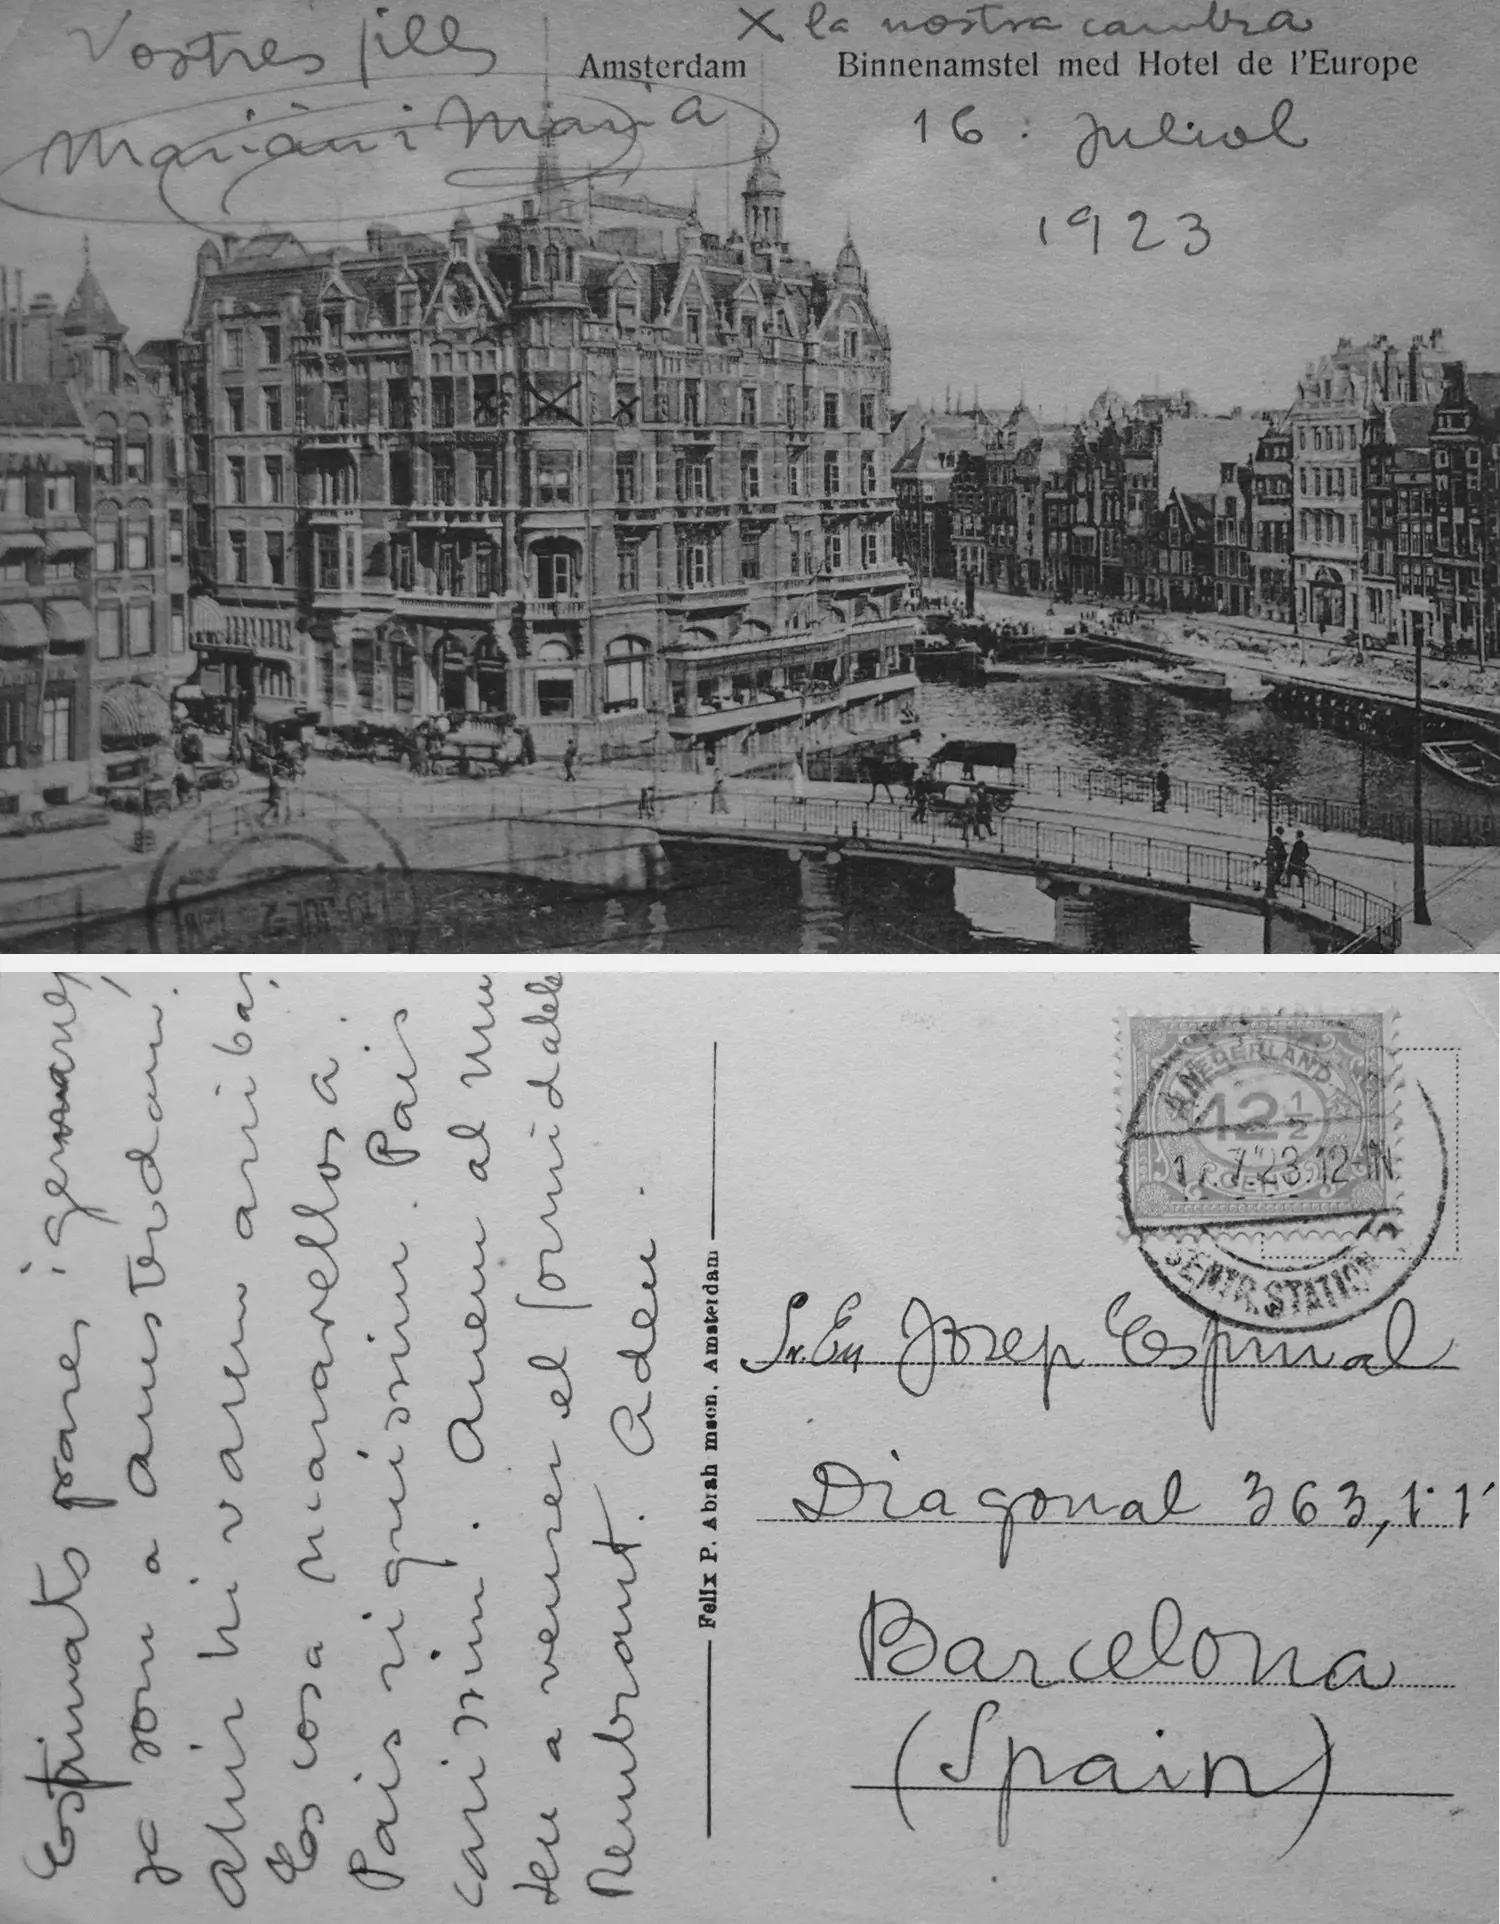 Vostres fills
Marià i Maria
X la nostra cambra
Amsterdam
Binnenamstel med Hotel de l'Europe
16. Juliol
1923
Estimats pares i germanes,
ja som a Amsterdam,
ahir hi varem arribar,
Es cosa maravellosa.
Pais riquissim. Pais
carissim. Anem al mu
seu a veure el formidable
Rembrant. Adeu.
Felix P. Abrahamson, Amsterdam
NEDERLAND
12½
CENT
17.7.23.12-1N
CENTR. STATION
Sr. En Josep Espinal
Diagonal 363, 1.1ª
Barcelona
(Spain)